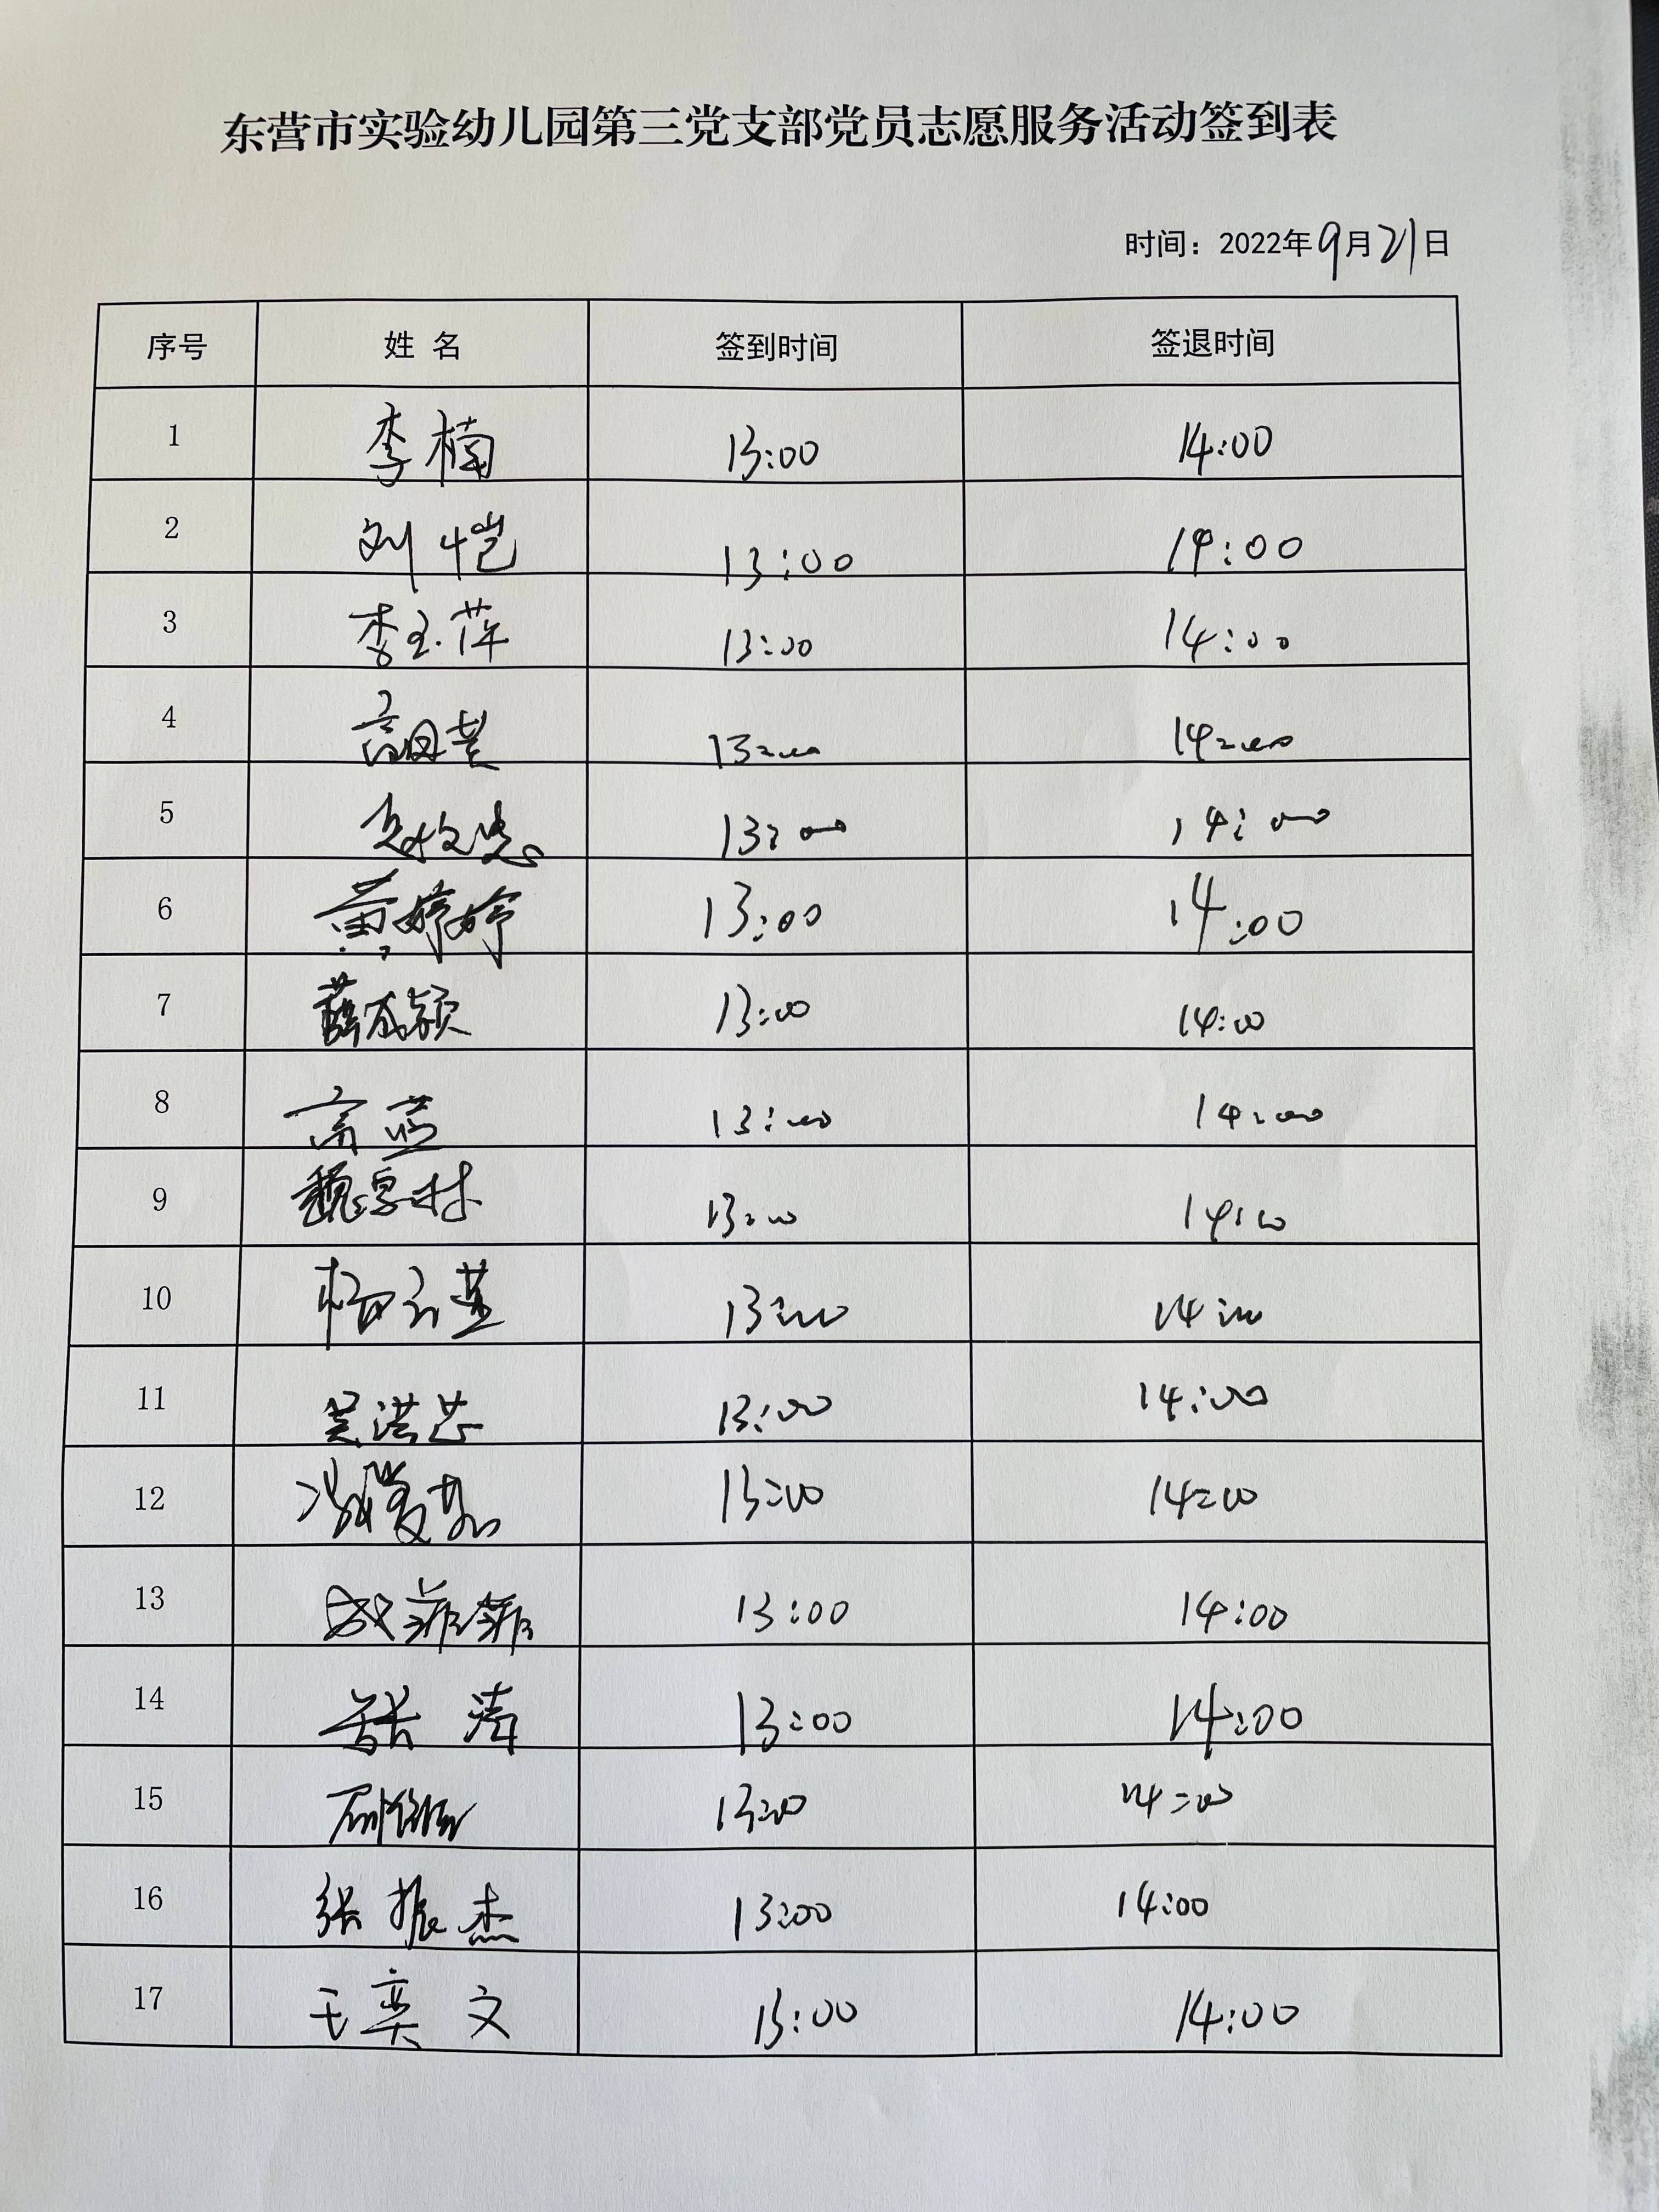 东营市实验幼儿园第三党支部党员志愿服务活动签到表
时间：2022年9月21日
序号 姓 名 签到时间 签退时间
1 李楠 13:00 14:00
2 刘恺 13:00 14:00
3 李玉萍 13:00 14:00
4 13:00 14:00
5 13:00 14:00
6 黄婷婷 13:00 14:00
7 13:00 14:00
8 高蓝 13:00 14:00
9 13:00 14:00
10 13:00 14:00
11 吴洪芯 13:00 14:00
12 13:00 14:00
13 13:00 14:00
14 张涛 13:00 14:00
15 13:00 14:00
16 张振杰 13:00 14:00
17 王奕文 13:00 14:00